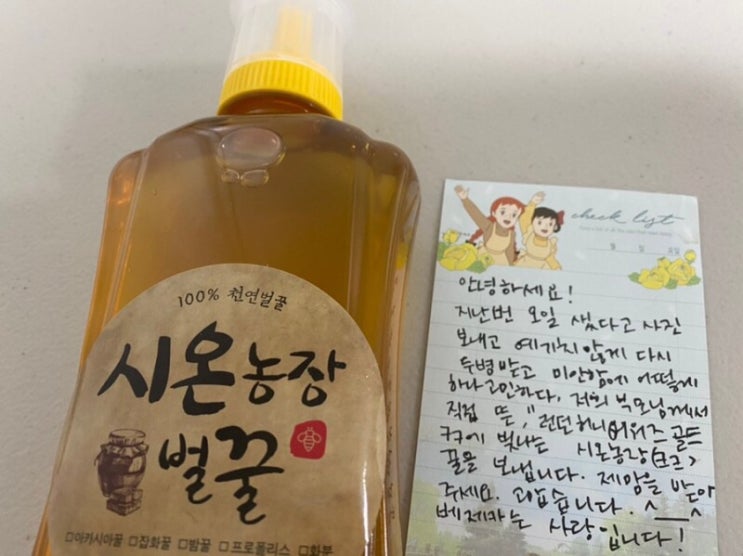 100% 천연벌꿀
시온농장
벌꿀
□아카시아꿀 □잡화꿀 □밤꿀 □프로폴리스 □화분
check list
월 일 요일
안녕하세요!
지난번 오일 샜다고 사진
보내고 예기치 않게 다시
두병 받고 미안함에 어떻게
하나 고민하다, 저희 부모님께서
직접 뜬, "런던 허니어워즈 골드
꿀을 보냅니다. 제 맘을 받아
주세요. 고맙습니다. ^__^
베제카는 사랑입니다!